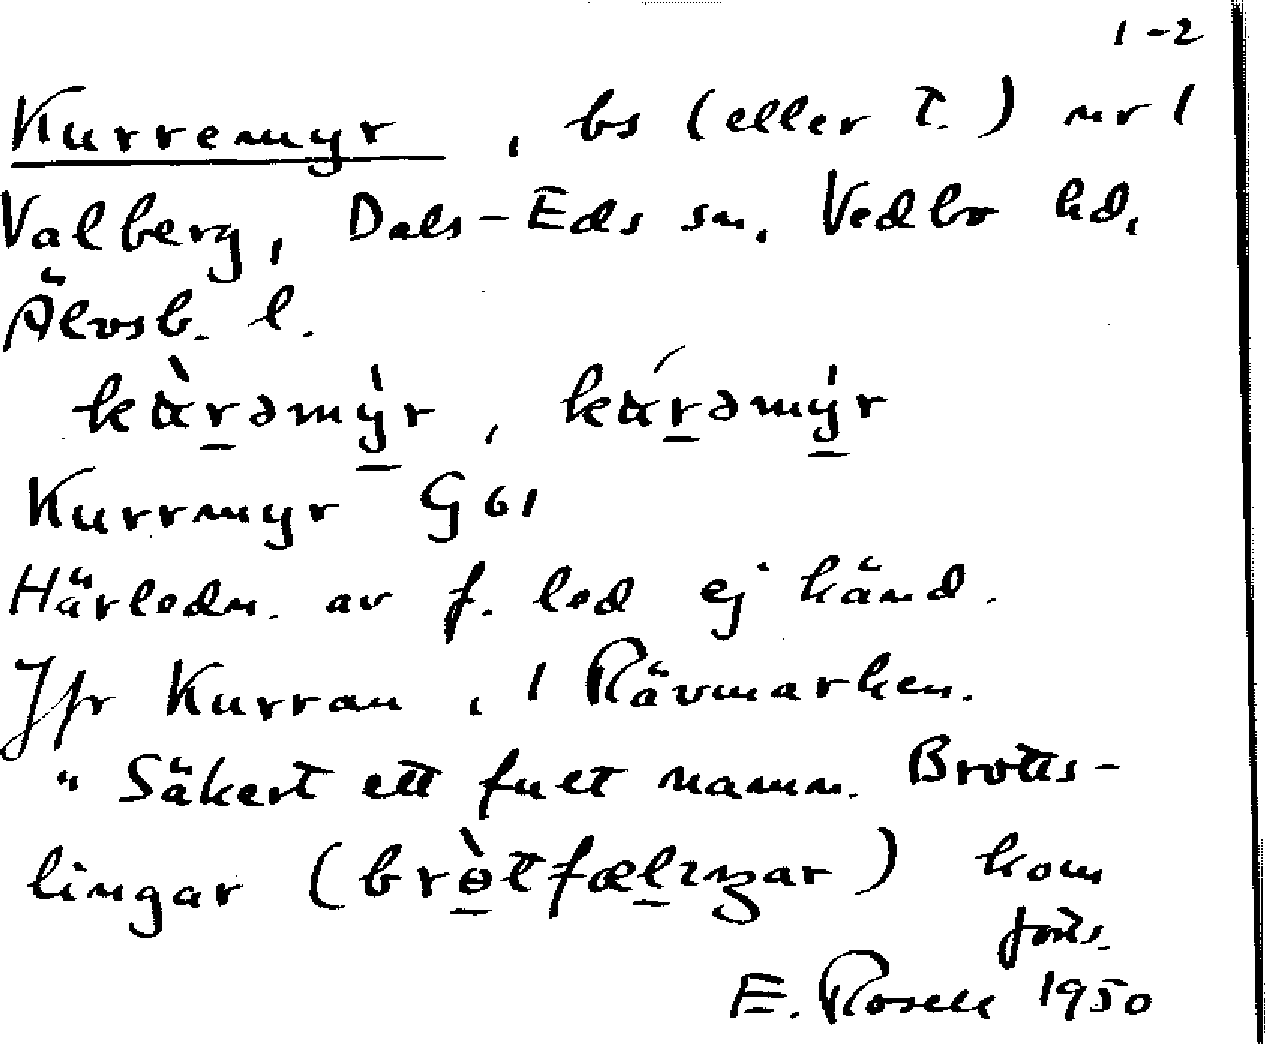 1-2
Kurremyr, bs (eller t.) nr 1
Valberg, Dals-Eds sn, Vedbo hd,
Älvsb. l.
kɤ̀rəmy̌r, kɤ́rəmy̌r
Kurrmyr G 61
Härledn. av f. led ej känd.
Jfr Kurran, 1 Rävmarken.
"Säkert ett fult namn. Brotts-
lingar (brɵ̀tfælıŋar) kom
forts.
E. Rosell 1950